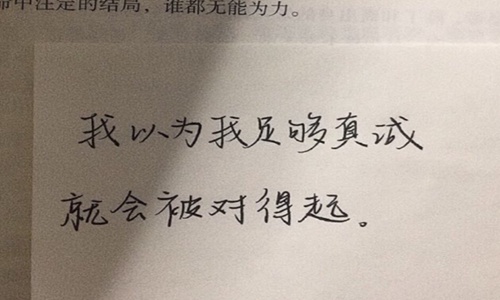 命中注定的结局，谁都无能为力。
我以为我足够真诚
就会被对得起。